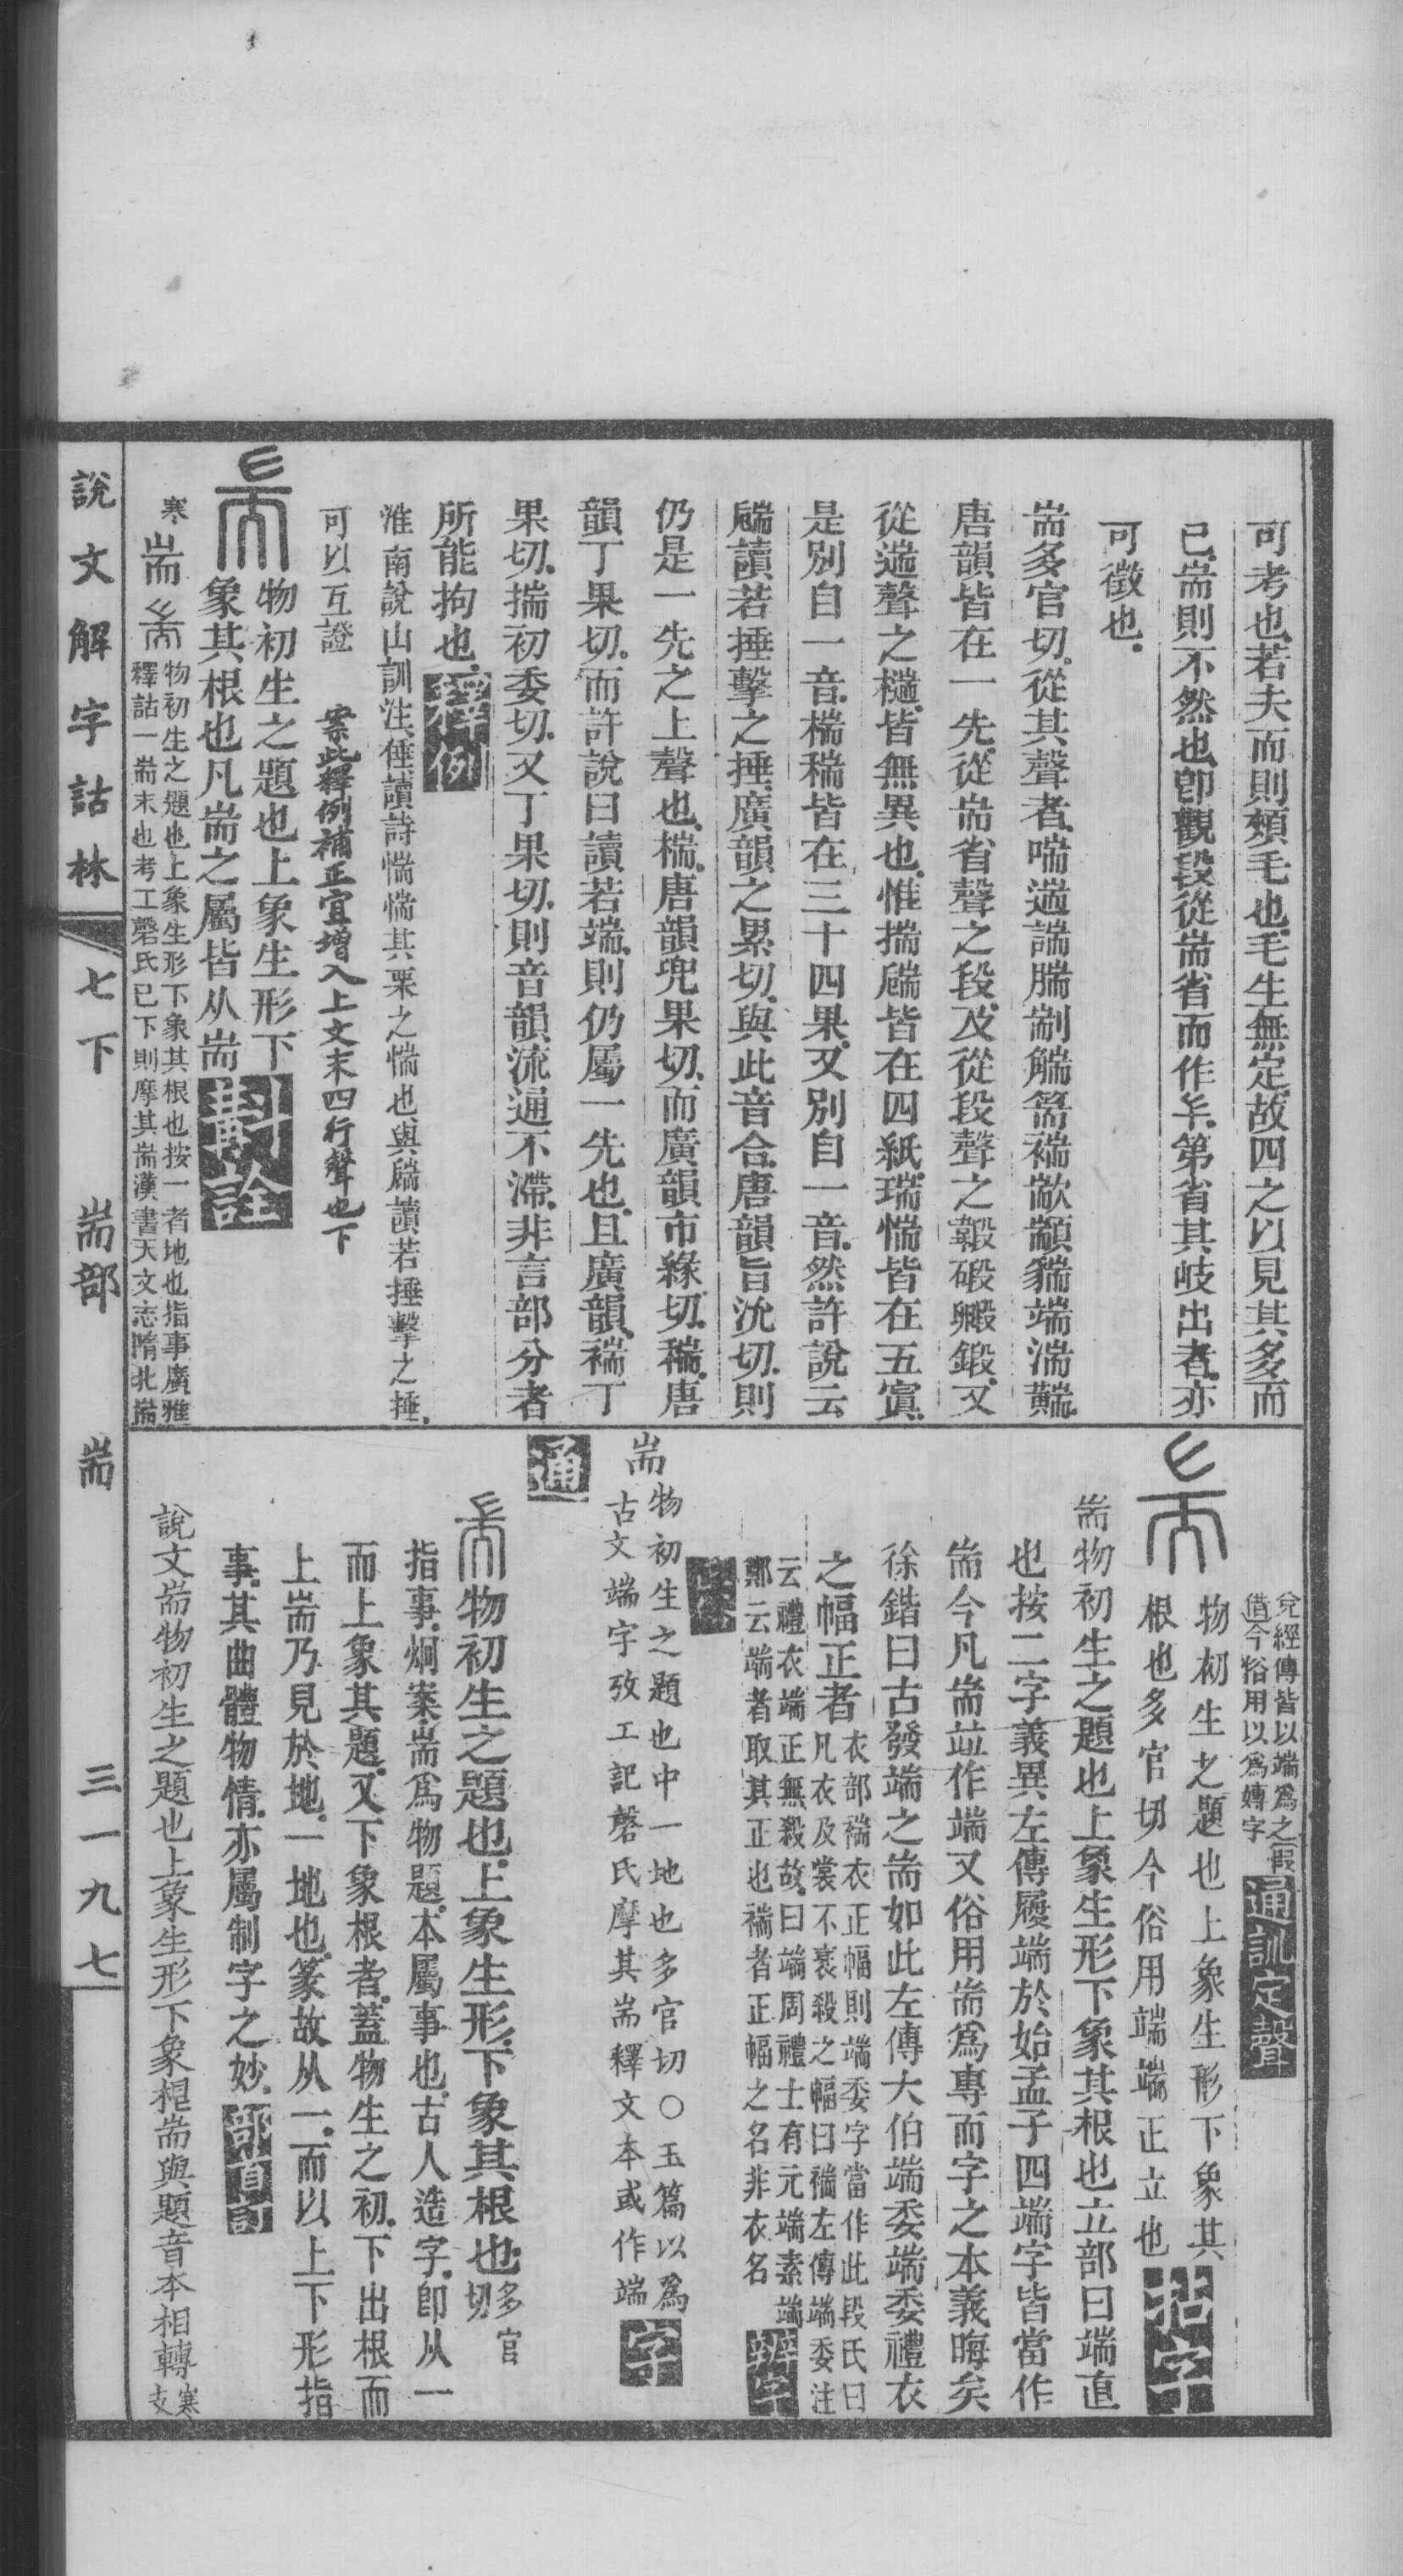 可考也若夫而則頰毛也毛生無定故四之以見其多而
已耑則不然也卽觀段從耑省而作𠂹第省其岐出者亦
可徵也
耑多官切從其聲者喘遄諯腨剬觿耑褍歂顓貒端湍
唐韻皆在一先從耑省聲之段及從段聲之鍛碫鍛又
從遄聲之檛皆無異也惟揣皆在四紙瑞惴皆在五寘
是別自一音椯稦皆在三十四果又別自一音然許說云
讀若捶擊之捶廣韻之累切與此音合唐韻旨沇切則
仍是一先之上聲也椯唐韻兜果切而廣韻市緣切稦唐
韻丁果切而許說曰讀若端則仍屬一先也且廣韻褍丁
果切揣初委切又丁果切則音韻流通不滯非言部分者
所能拘也釋例
淮南說山訓注倕讀詩惴惴其栗之惴也與讀若捶擊之捶
可以互證 案此釋例補正宜增入上文末四行聲也下
物初生之題也上象生形下
象其根也凡耑之屬皆从耑斠詮
寒 耑 物初生之題也上象生形下象其根也按一者地也指事廣雅
釋詁一耑末也考工磬氏已下則摩其耑漢書天文志隋北耑
兌經傳皆以端爲之假
借今俗用以爲專字通訓定聲
物初生之題也上象生形下象其
根也多官切今俗用端端正立也
耑物初生之題也上象生形下象其根也立部曰端直
也按二字義異左傳履端於始孟子四端字皆當作
耑今凡耑竝作端又俗用耑爲專而字之本義晦矣
徐鍇曰古發端之耑如此左傳大伯端委端委禮衣
之幅正者衣部褍衣正幅則端委字當作此段氏曰
凡衣及裳不衺殺之幅曰褍左傳端委注
云禮衣端正無殺故曰端周禮士有元端素端
鄭云端者取其正也褍者正幅之名非衣名
耑 物初生之題也中一地也多官切○玉篇以爲
古文端字攷工記磬氏摩其耑釋文本或作端
通
物初生之題也上象生形下象其根也多官切
指事烱案耑爲物題本屬事也古人造字卽从一
而上象其題又下象根者蓋物生之初下出根而
上耑乃見於地一地也篆故从一而以上下形指
事其曲體物情亦屬制字之妙部首訂
說文耑物初生之題也上象生形下象根耑與題音本相轉寒支
說文解字詁林 七下 耑部 耑 三一九七